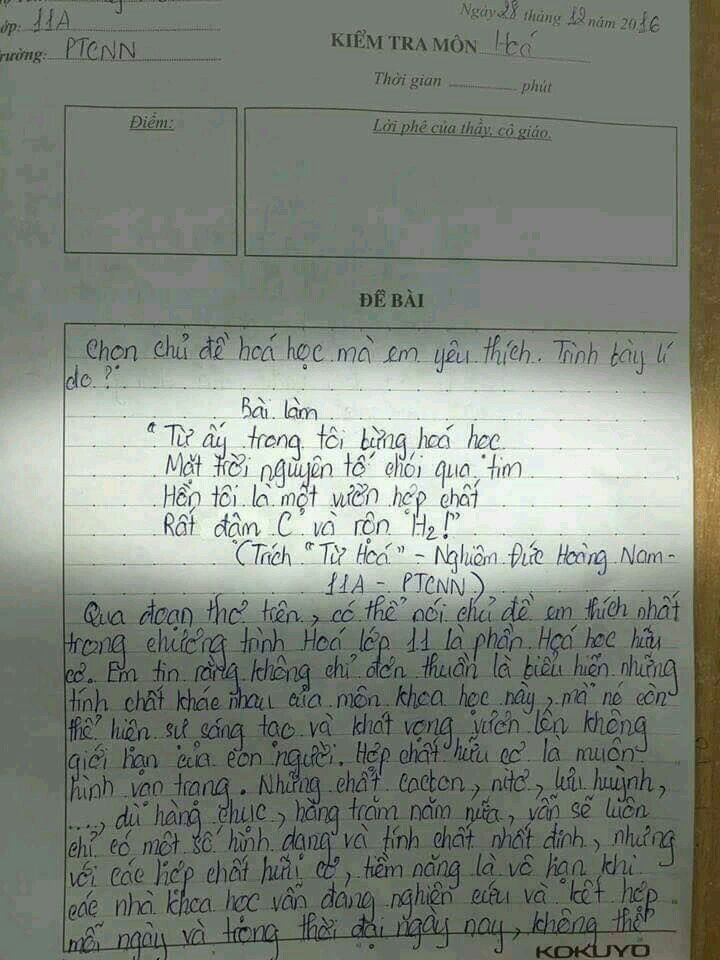 Ngày 28 tháng 12 năm 2016
lớp: 11A
KIỂM TRA MÔN Hoá
trường: PTCNN
Thời gian ............ phút
Điểm:
Lời phê của thầy, cô giáo.
ĐỀ BÀI
Chọn chủ đề hoá học mà em yêu thích. Trình bày lí
do?
Bài làm
"Từ ấy trong tôi bừng hoá học
Mặt trời nguyên tố chói qua tim
Hồn tôi là một vườn hợp chất
Rất đậm C và rộn H₂!"
(Trích "Từ Hoá" - Nghiêm Đức Hoàng Nam -
11A - PTCNN)
Qua đoạn thơ trên, có thể nói chủ đề em thích nhất
trong chương trình Hoá lớp 11 là phần Hoá học hữu
cơ. Em tin rằng không chỉ đơn thuần là biểu hiện những
tính chất khác nhau của môn khoa học này, mà nó còn
thể hiện sự sáng tạo và khát vọng vươn lên không
giới hạn của con người. Hợp chất hữu cơ là muôn
hình vạn trạng. Những chất cacbon, nitơ, lưu huỳnh,
..., dù hàng chục, hàng trăm năm nữa, vẫn sẽ luôn
chỉ có một số hình dạng và tính chất nhất định, nhưng
với các hợp chất hữu cơ, tiềm năng là vô hạn khi
các nhà khoa học vẫn đang nghiên cứu và kết hợp
mỗi ngày và trong thời đại ngày nay, không thể
KOKUYO